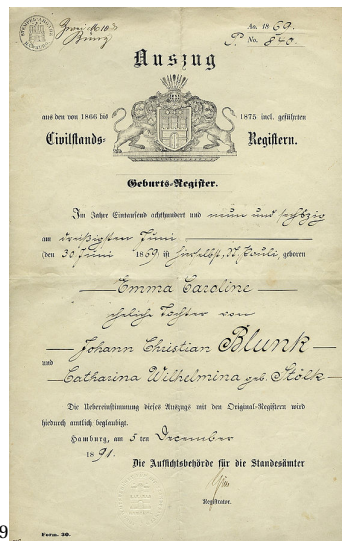 Ao. 1869.
P. No. 840.
Auszug
aus den von 1866 bis 1875 incl. geführten
Civilstands- Registern.
Geburts-Register.
Im Jahre Eintausend achthundert und neun und sechszig
am dreißigsten Juni
(den 30 Juni 1869 ist hieselbst, St. Pauli, geboren
Emma Caroline
eheliche Tochter von
Johann Christian Blunk
und
Catharina Wilhelmina geb. Stölk
Die Uebereinstimmung dieses Auszugs mit den Original-Registern wird
hiedurch amtlich beglaubigt.
Hamburg, am 5 ten December
1891.
Die Aufsichtsbehörde für die Standesämter
Registrator.
9
Form. 30.